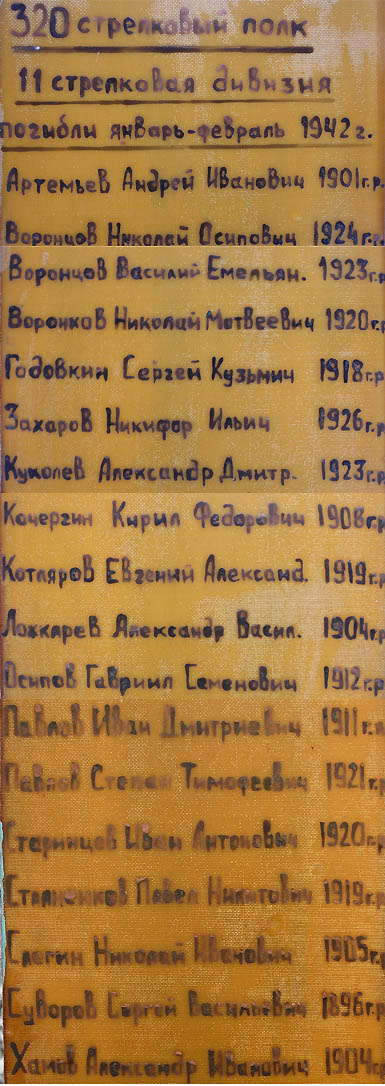 320 стрелковый полк
11 стрелковая дивизия
погибли январь-февраль 1942 г.
Артемьев Андрей Иванович 1901 г.р.
Воронцов Николай Осипович 1924 г.р.
Воронцов Василий Емельян. 1923 г.р.
Воронков Николай Матвеевич 1920 г.р.
Годовкин Сергей Кузьмич 1918 г.р.
Захаров Никифор Ильич 1926 г.р.
Куколев Александр Дмитр. 1923 г.р.
Кочергин Кирил Федорович 1908 г.р.
Котляров Евгений Александ. 1919 г.р.
Ложкарев Александр Васил. 1904 г.р.
Осипов Гавриил Семенович 1912 г.р.
Павлов Иван Дмитриевич 1911 г.р.
Павлов Степан Тимофеевич 1921 г.р.
Старинцов Иван Антонович 1920 г.р.
Павел Никитович 1919 г.р.
Николай Иванович 1905 г.р.
Суворов Сергей Васильевич 1896 г.р.
Хамов Александр Иванович 1904 г.